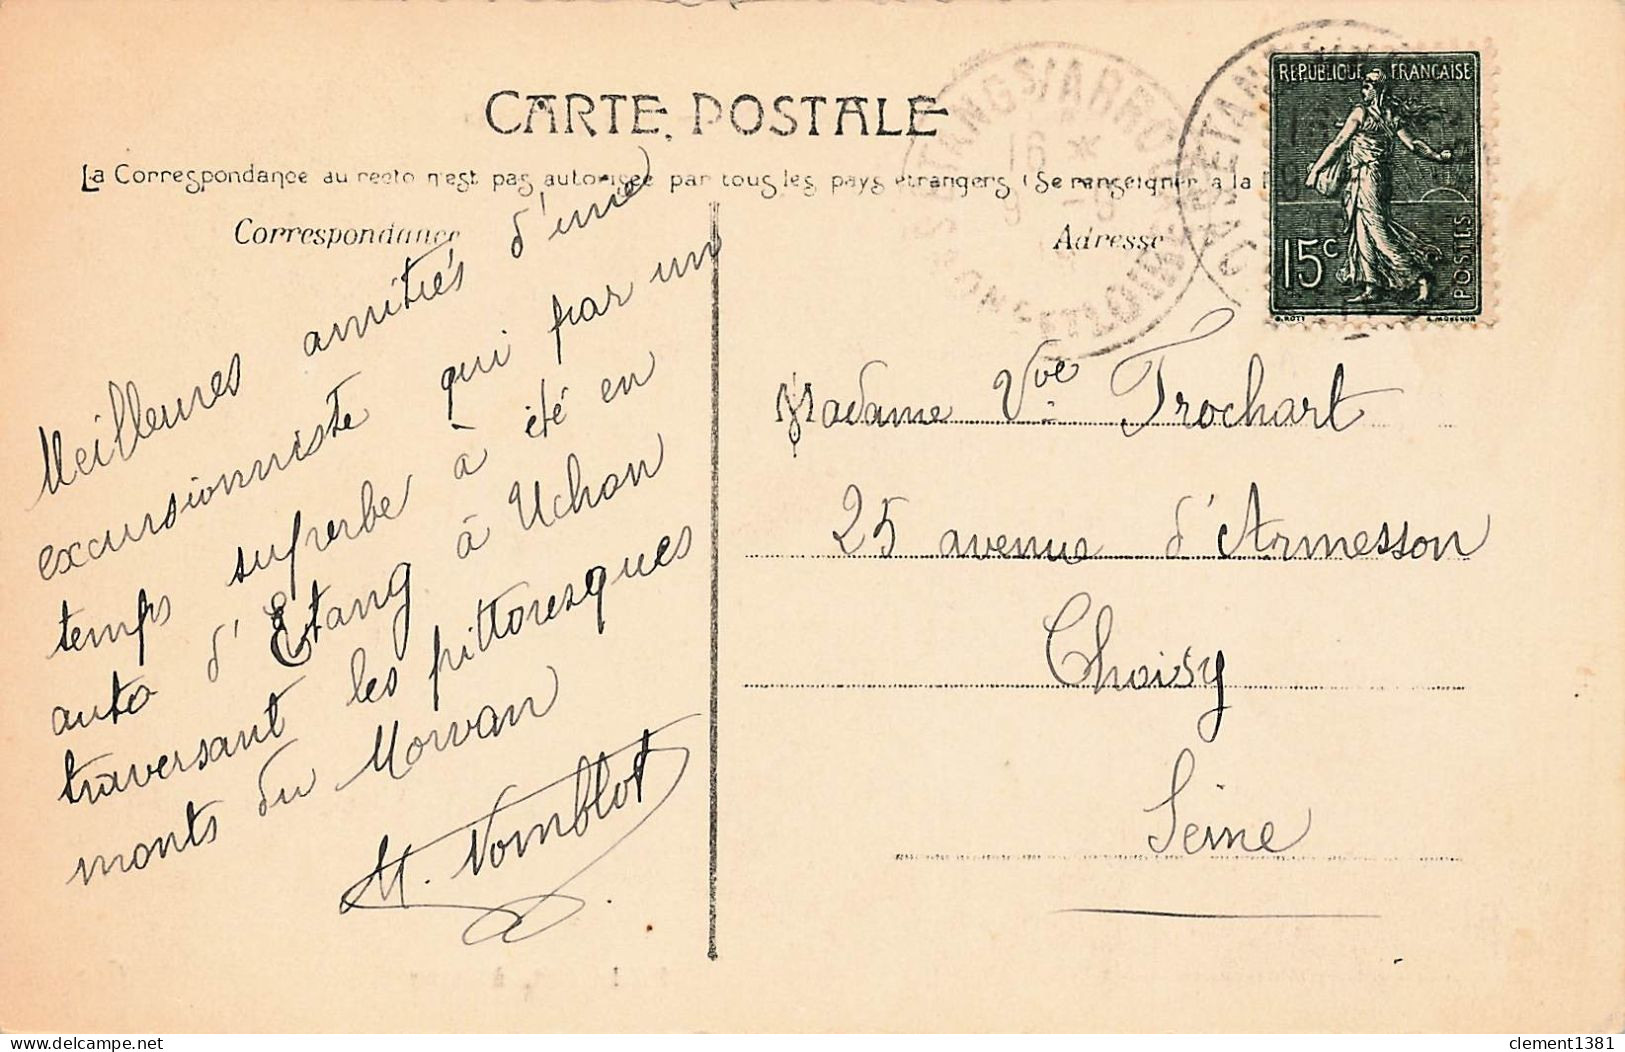 CARTE POSTALE
La Correspondance au recto n'est pas autorisée par tous les pays étrangers (Se renseigner à la
Correspondance
Adresse
Meilleures amitiés d'une
excursionniste qui par un
temps superbe à été en
auto d'Etang à Uchon
traversant les pittoresques
monts du Morvan
M. Vomblot
REPUBLIQUE FRANÇAISE
15c
POSTES
O. ROTY
ETANG S/ARROUX
SAONE ET LOIRE
16 *
9 -9
Madame Vve Trochart
25 avenue d'Armesson
Choisy
Seine
www.delcampe.net
clement1381